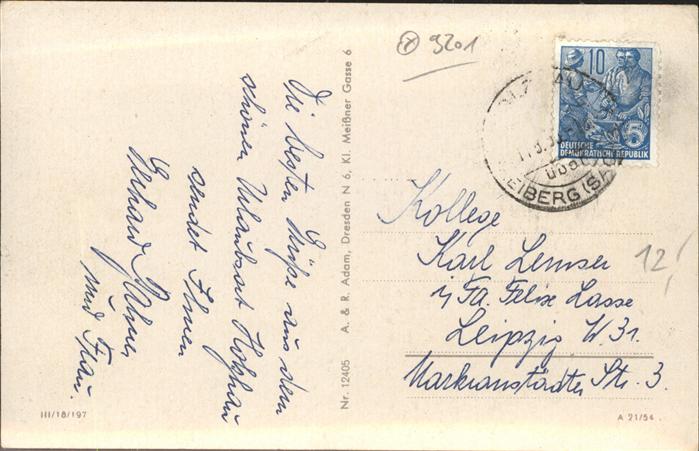 Die besten Grüße aus dem
schönen Urlaubsort Holzhau
sendet Ihnen
und Frau.
Nr. 12405 A. & R. Adam, Dresden N 6, Kl. Meißner Gasse 6
III/18/197
9201
10
5
DEUTSCHE
DEMOKRATISCHE REPUBLIK
EIBERG (SA
Kollege
Karl Lemser
i/Fa. Felix Lasse
Leipzig W 31.
Markranstädter Str. 3.
12,
A 21/54